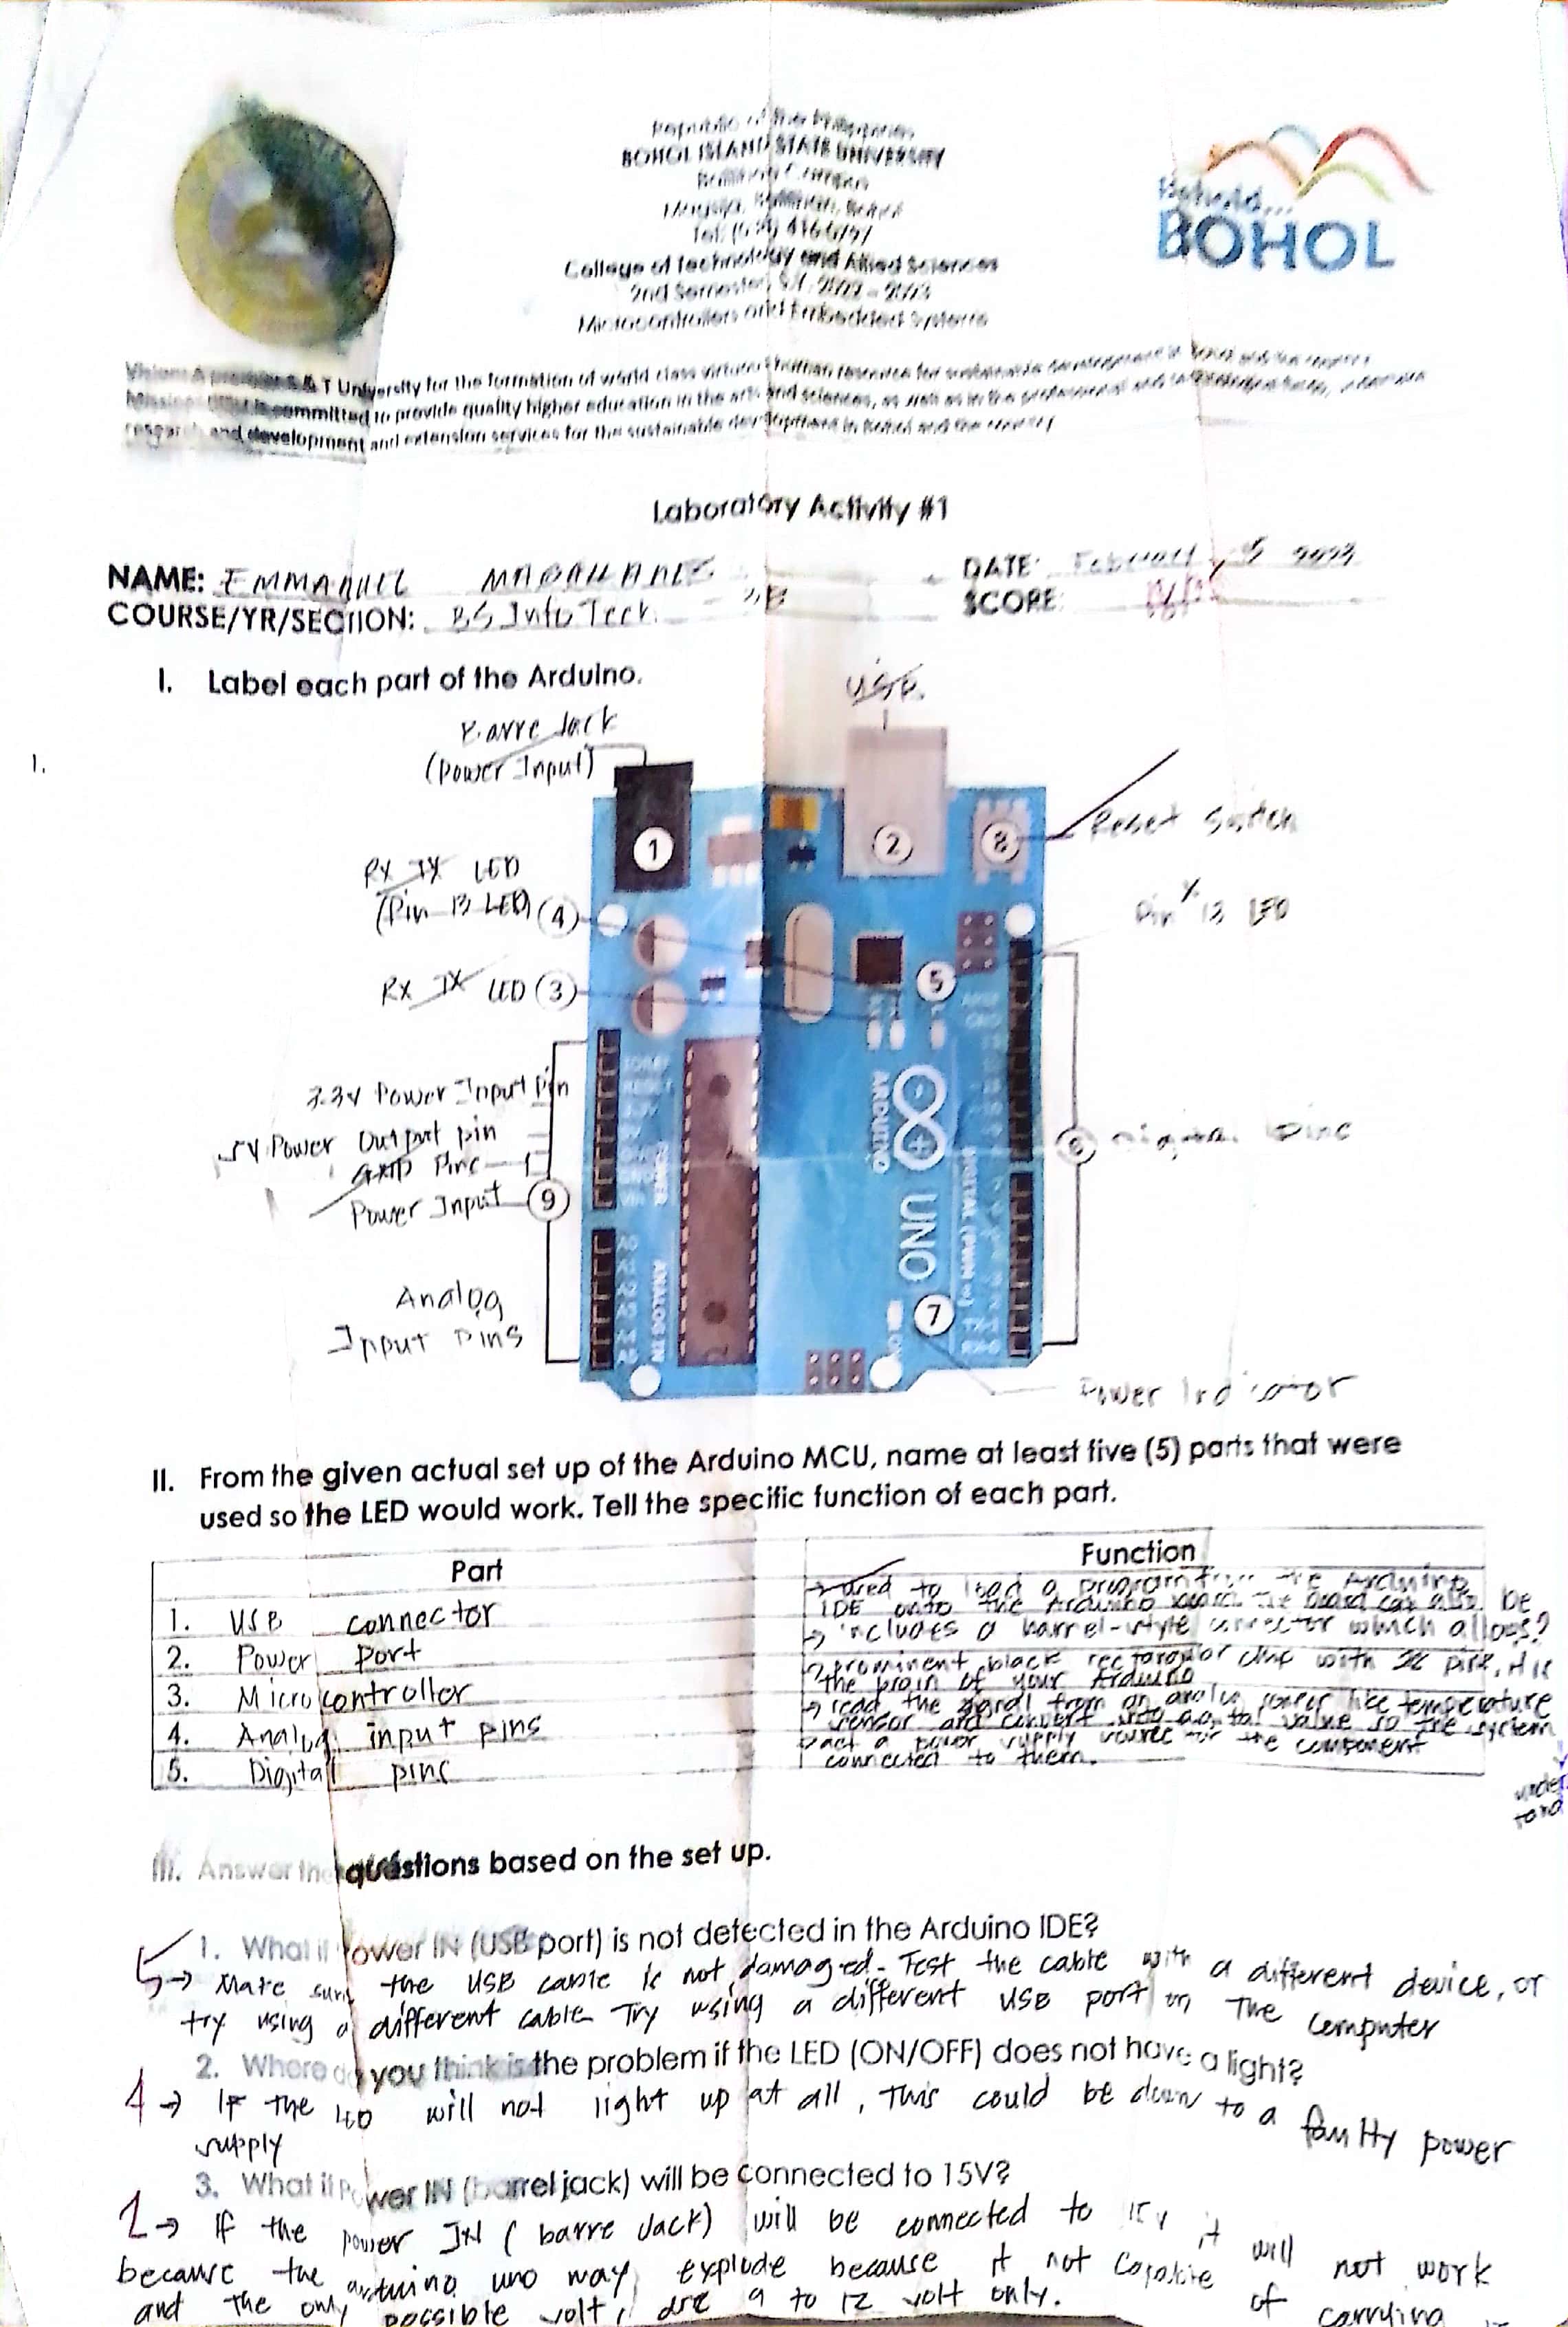 Republic of the Philippines
BOHOL ISLAND STATE UNIVERSITY
Campus
College of Technology and Allied Sciences
2nd Semester, S.Y. 2022 - 2023
Microcontrollers and Embedded Systems
Behold...
BOHOL
S & T University for the formation of world class virtuous human resource for sustainable development in Bohol and the
is committed to provide quality higher education in the arts and sciences, as well as in the professional and technological
research and development and extension services for the sustainable development in Bohol and the country
Laboratory Activity #1
NAME: EMMANUEL
DATE: February 15 2023
COURSE/YR/SECTION: BS Info Tech.
SCORE:
I. Label each part of the Arduino.
USB
Barre Jack
(Power Input)
1.
1
2
8
Reset Switch
RX TX LED
(Pin 13 LED) (4)
Pin 13 LED
RX TX LED (3)
5
3.3V Power Input Pin
5V Power Output pin
GND Pins
Power Input
9
6 Digital Pins
Analog
Input Pins
ARDUINO
UNO
POWER
ANALOG IN
7
ON
Power Indicator
II. From the given actual set up of the Arduino MCU, name at least five (5) parts that were
used so the LED would work. Tell the specific function of each part.
Part
Function
1. USB connector
2. Power port
3. Microcontroller
4. Analog input pins
5. Digital pins
→ used to load a program from the Arduino
IDE onto the Arduino board. The board can also be
→ includes a barrel-style connector which allows?
→ prominent black rectangular chip with pins, it is
the brain of your Arduino
→ read the signal from an analog sensor like temperature
sensor and convert into value so the system
→ act a power supply source for the component
connected to them.
III. Answer the questions based on the set up.
1. What if Power IN (USB port) is not detected in the Arduino IDE?
5 → Make sure the USB cable is not damaged. Test the cable with a different device, or
try using a different cable. Try using a different USB port on The computer
2. Where do you think is the problem if the LED (ON/OFF) does not have a light?
→ If the will not light up at all, This could be down to a faulty power
supply
3. What if Power IN (barrel jack) will be connected to 15V?
→ If the power IN (barre Jack) will be connected to 15v it will not work
because the arduino uno may explode because it not capable of carrying
and the only possible volt, are 9 to 12 volt only.